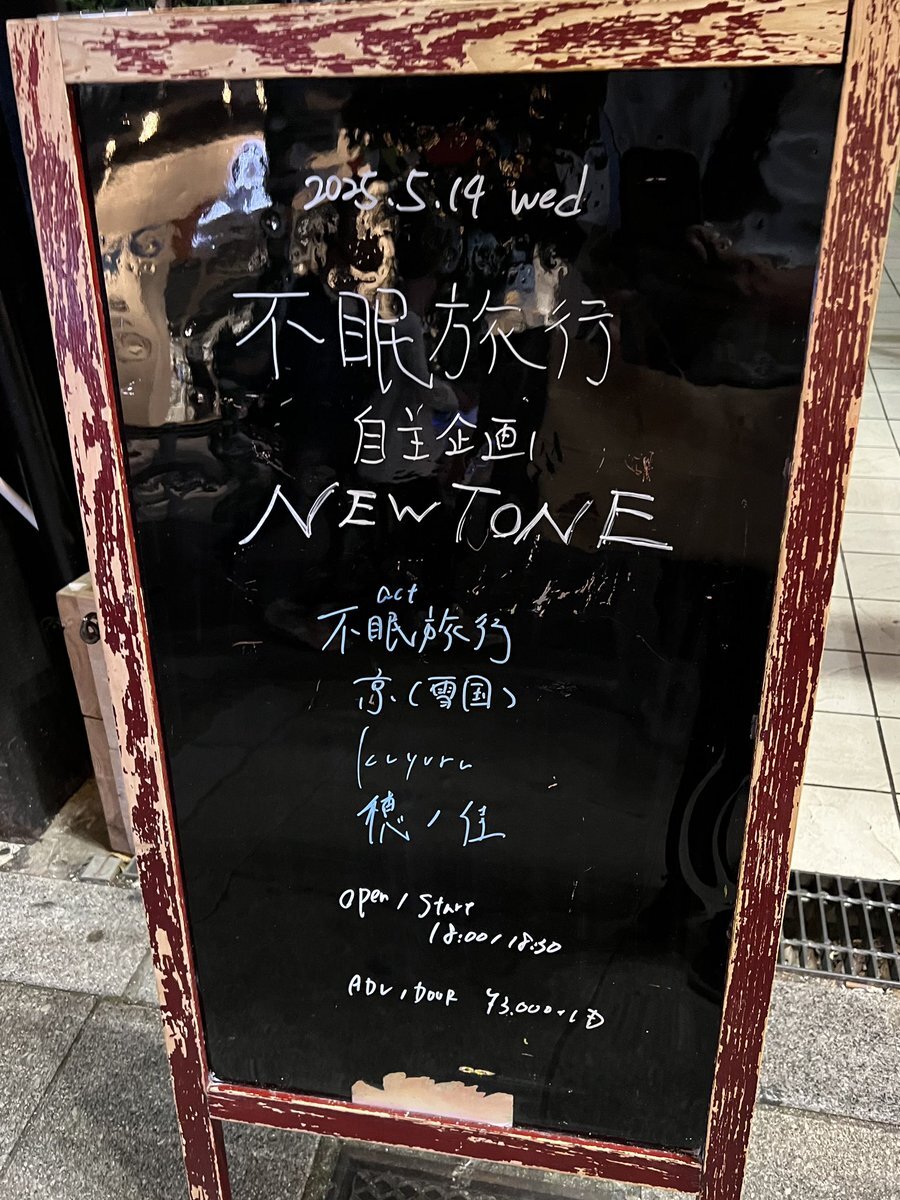 2025.5.14 wed
不眠旅行
自主企画
NEW TONE
act
不眠旅行
京(雪国)
kuyuru
穂ノ佳
open / start
18:00 / 18:30
ADV / DOOR ¥3.000+1D